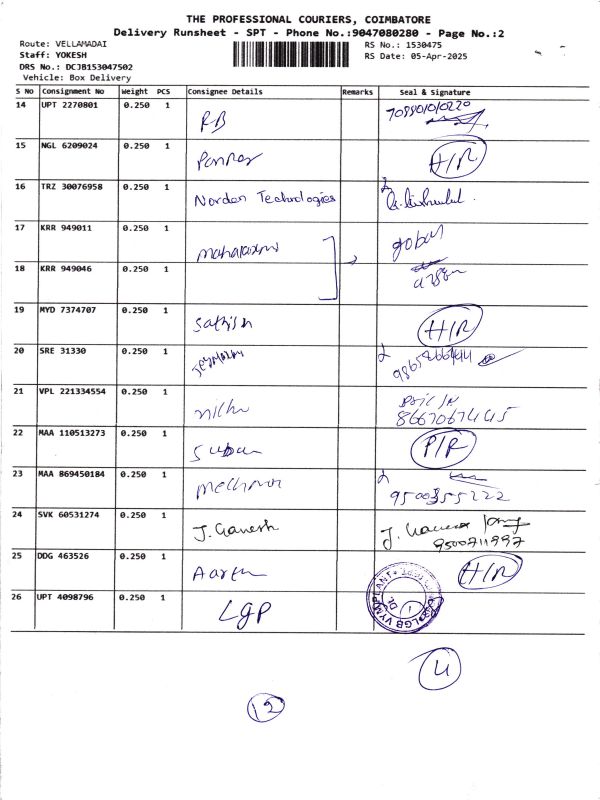 THE PROFESSIONAL COURIERS, COIMBATORE
Delivery Runsheet - SPT - Phone No.:9047080280 - Page No.:2
Route: VELLAMADAI
RS No.: 1530475
Staff: YOKESH
RS Date: 05-Apr-2025
DRS No.: DCJB153047502
Vehicle: Box Delivery
S No Consignment No Weight PCS Consignee Details Remarks Seal & Signature
14 UPT 2270801 0.250 1
RB
15 NGL 6209024 0.250 1
H/R
16 TRZ 30076958 0.250 1
Norden Technologies
17 KRR 949011 0.250 1
gobay
18 KRR 949046 0.250 1
19 MYD 7374707 0.250 1
Sathish
H/R
20 SRE 31330 0.250 1
21 VPL 221334554 0.250 1
22 MAA 110513273 0.250 1
P/R
23 MAA 869450184 0.250 1
9500355222
24 SVK 60531274 0.250 1
J. Ganesh
9500711997
25 DDG 463526 0.250 1
H/R
26 UPT 4098796 0.250 1
LGP
LGB VYMPLANT
12